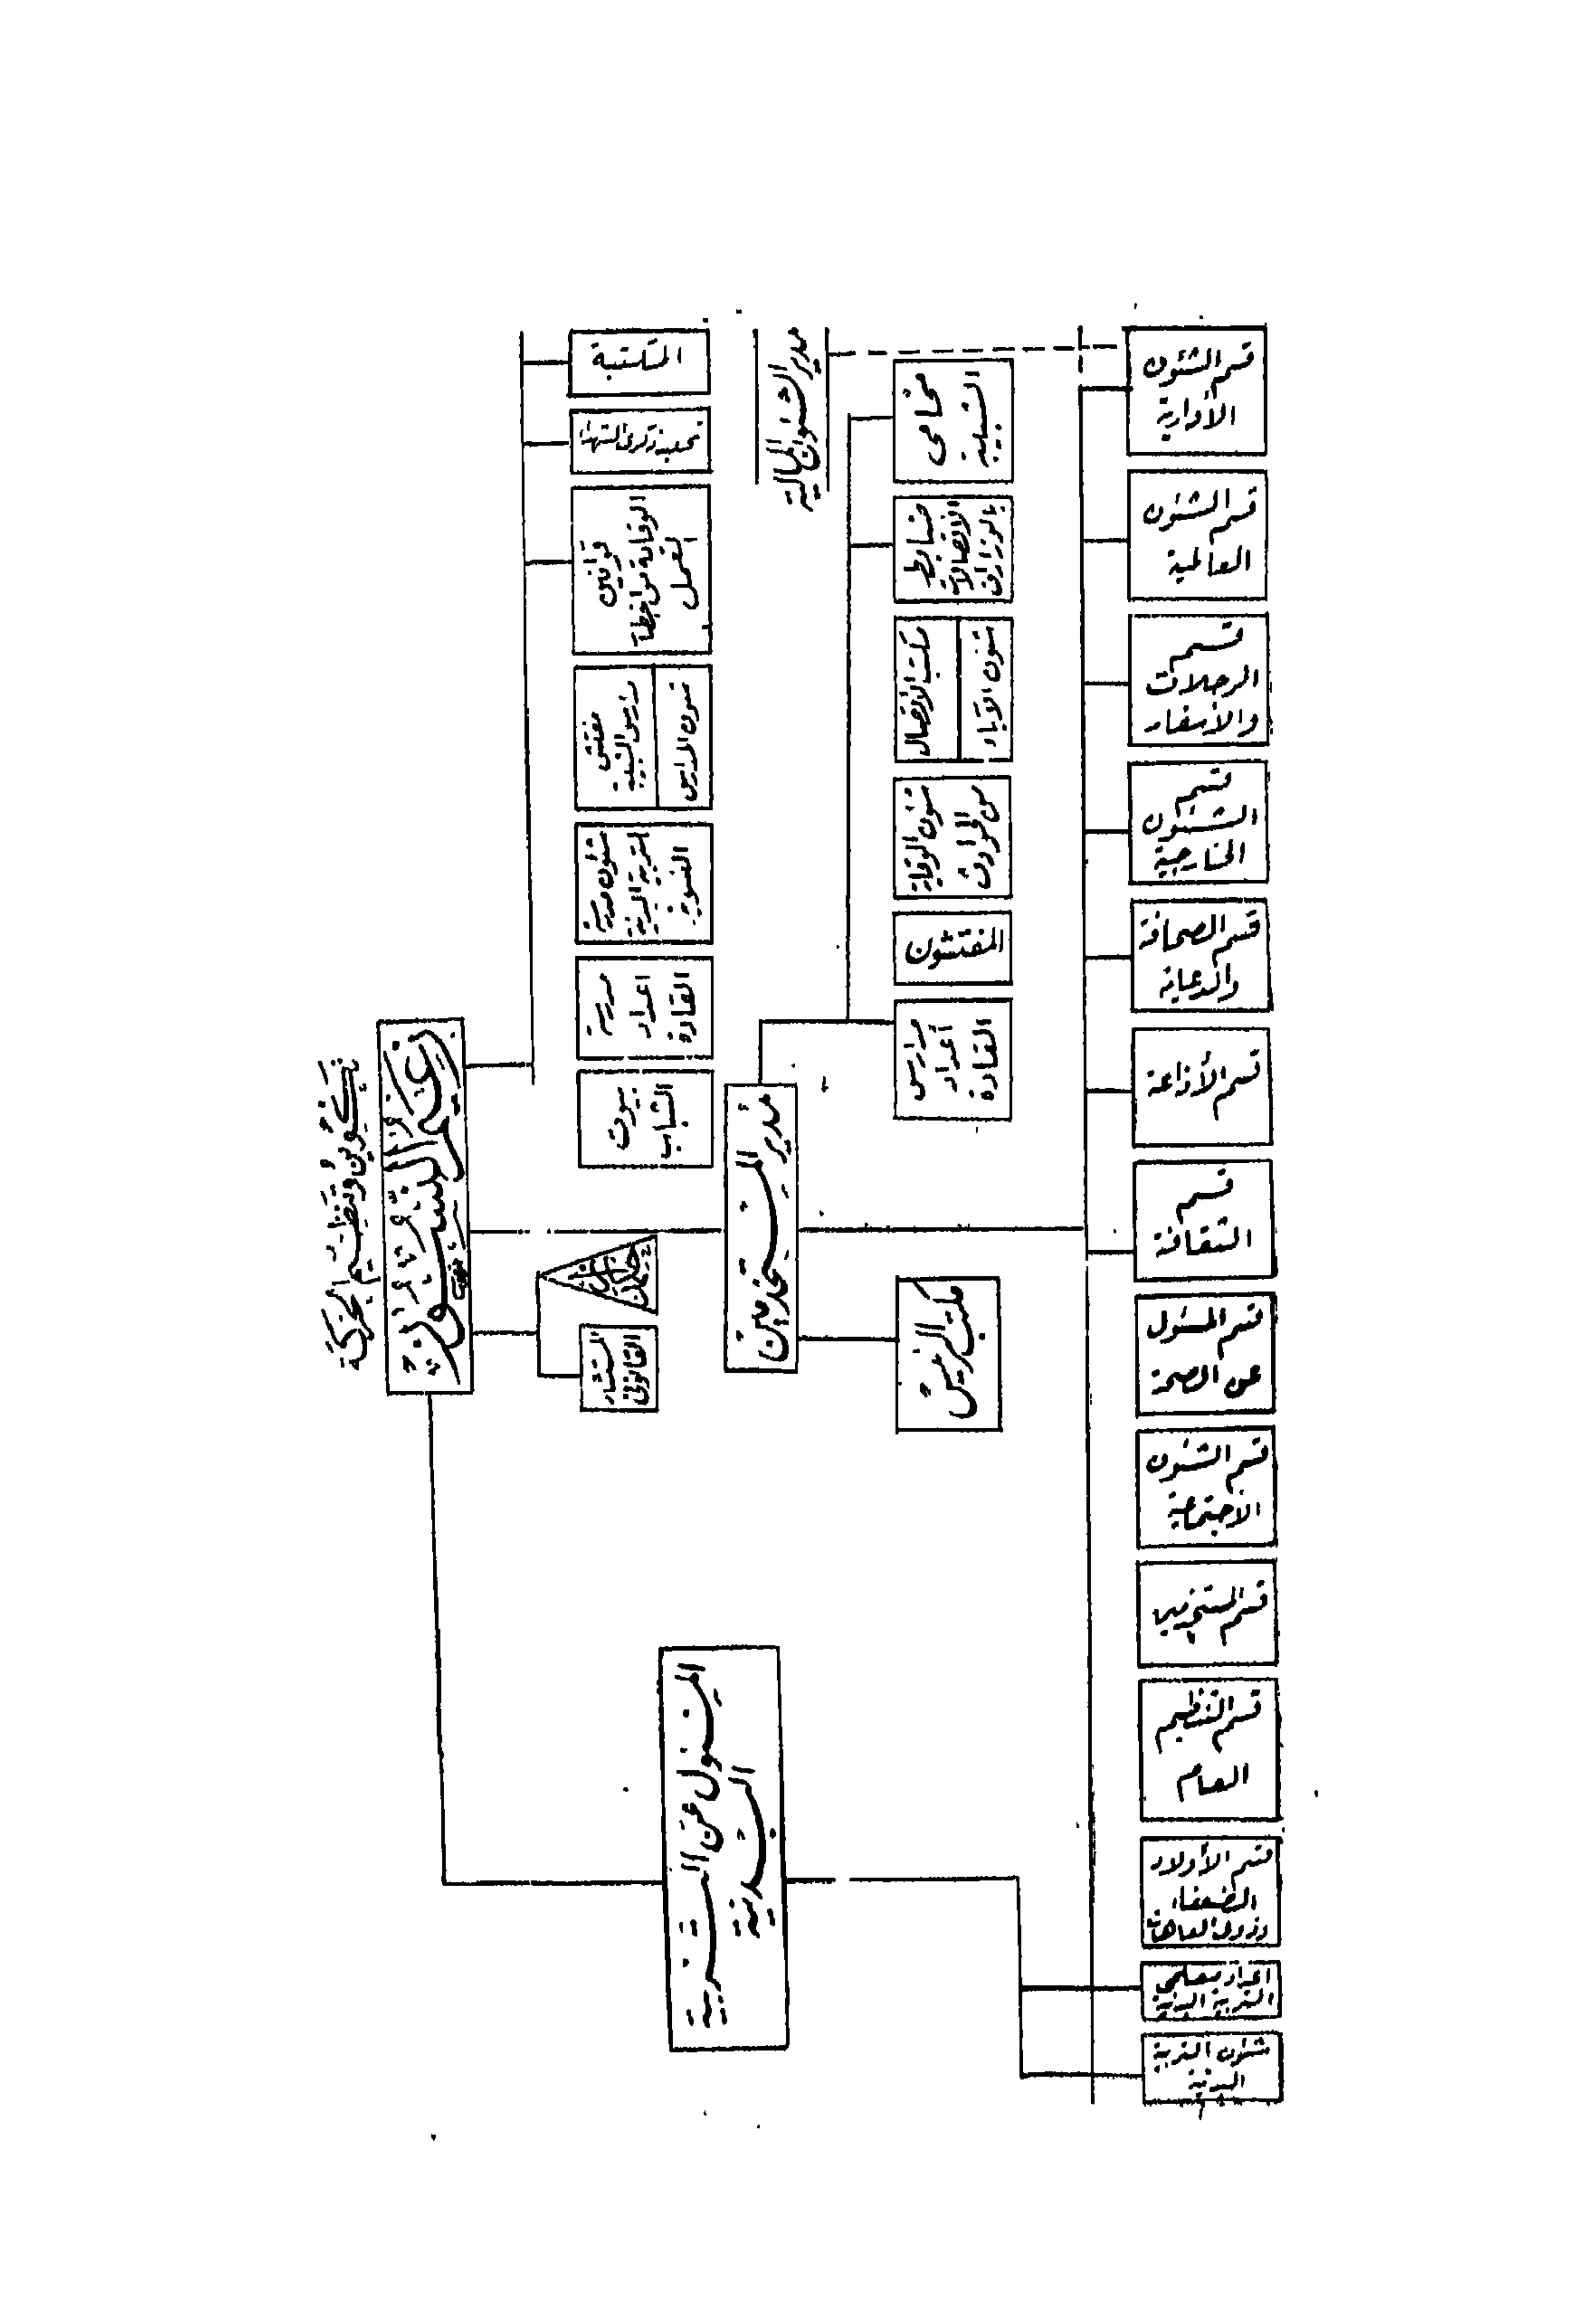 تكوين وتنظيم الحركة
زعيم
المكتبة
قوانين
الوقاية من اخطار
العمل
مفتش
مدارس الشبيبة
شئون المدارس
شئون مدرسة
التربية البدنية
النسوية
مدرسة
اعداد
القادة
بيوت
الشباب
المستشار
القانونى
مدير الشئون المالية
محامى
الشبيبة
ضابط
الاتصالات
بالوزارات
مكتب الاتصال
شئون الآباء
شئون الوقاية
من الحوادث
المفتشون
مدارس
أعداد
القادة
مدير المستخدمين
مكتب الرئيس
المسئول عن التربية
البدنية
قسم الشئون
الأدارية
قسم الشئون
العالمية
قسم
الرحلات
والأسفار
قسم
الشئون
الخارجية
قسم الصحافة
والدعاية
قسم الأذاعة
قسم
الثقافة
قسم المسئول
عن الصحة
قسم الشئون
الاجتماعية
قسم المستخدمين
قسم التنظيم
العام
قسم الأولاد
الضعفاء
وذوى العاهات
اعداد معلمى
التربية البدنية
شئون التربية
البدنية